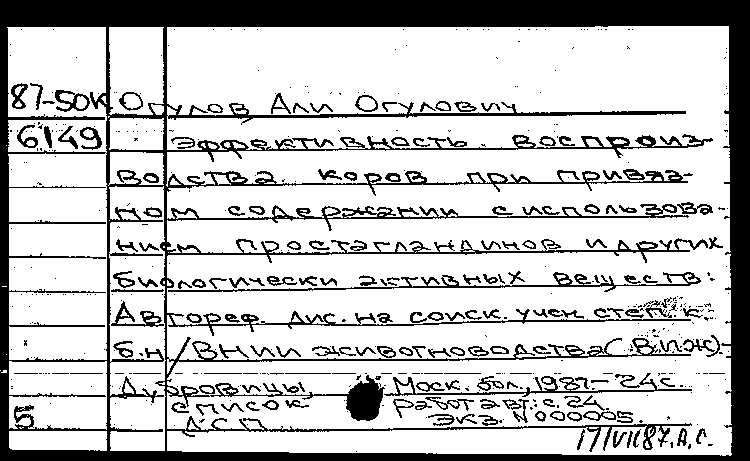 87-50к Огулов Али Огулович
6149 Эффективность воспроиз-
водства коров при привяз-
ном содержании с использова-
нием простагландинов и других
биологически активных веществ:
Автореф. дис. на соиск. учен. степ. к.
б.н/ВНИИ животноводства (ВИЖ)-
Дубровицы, Моск. обл., 1987- 24 с.
список работ авт.: с. 24
5 ДСП Экз. N 000005.
17/VII 87. А.С.